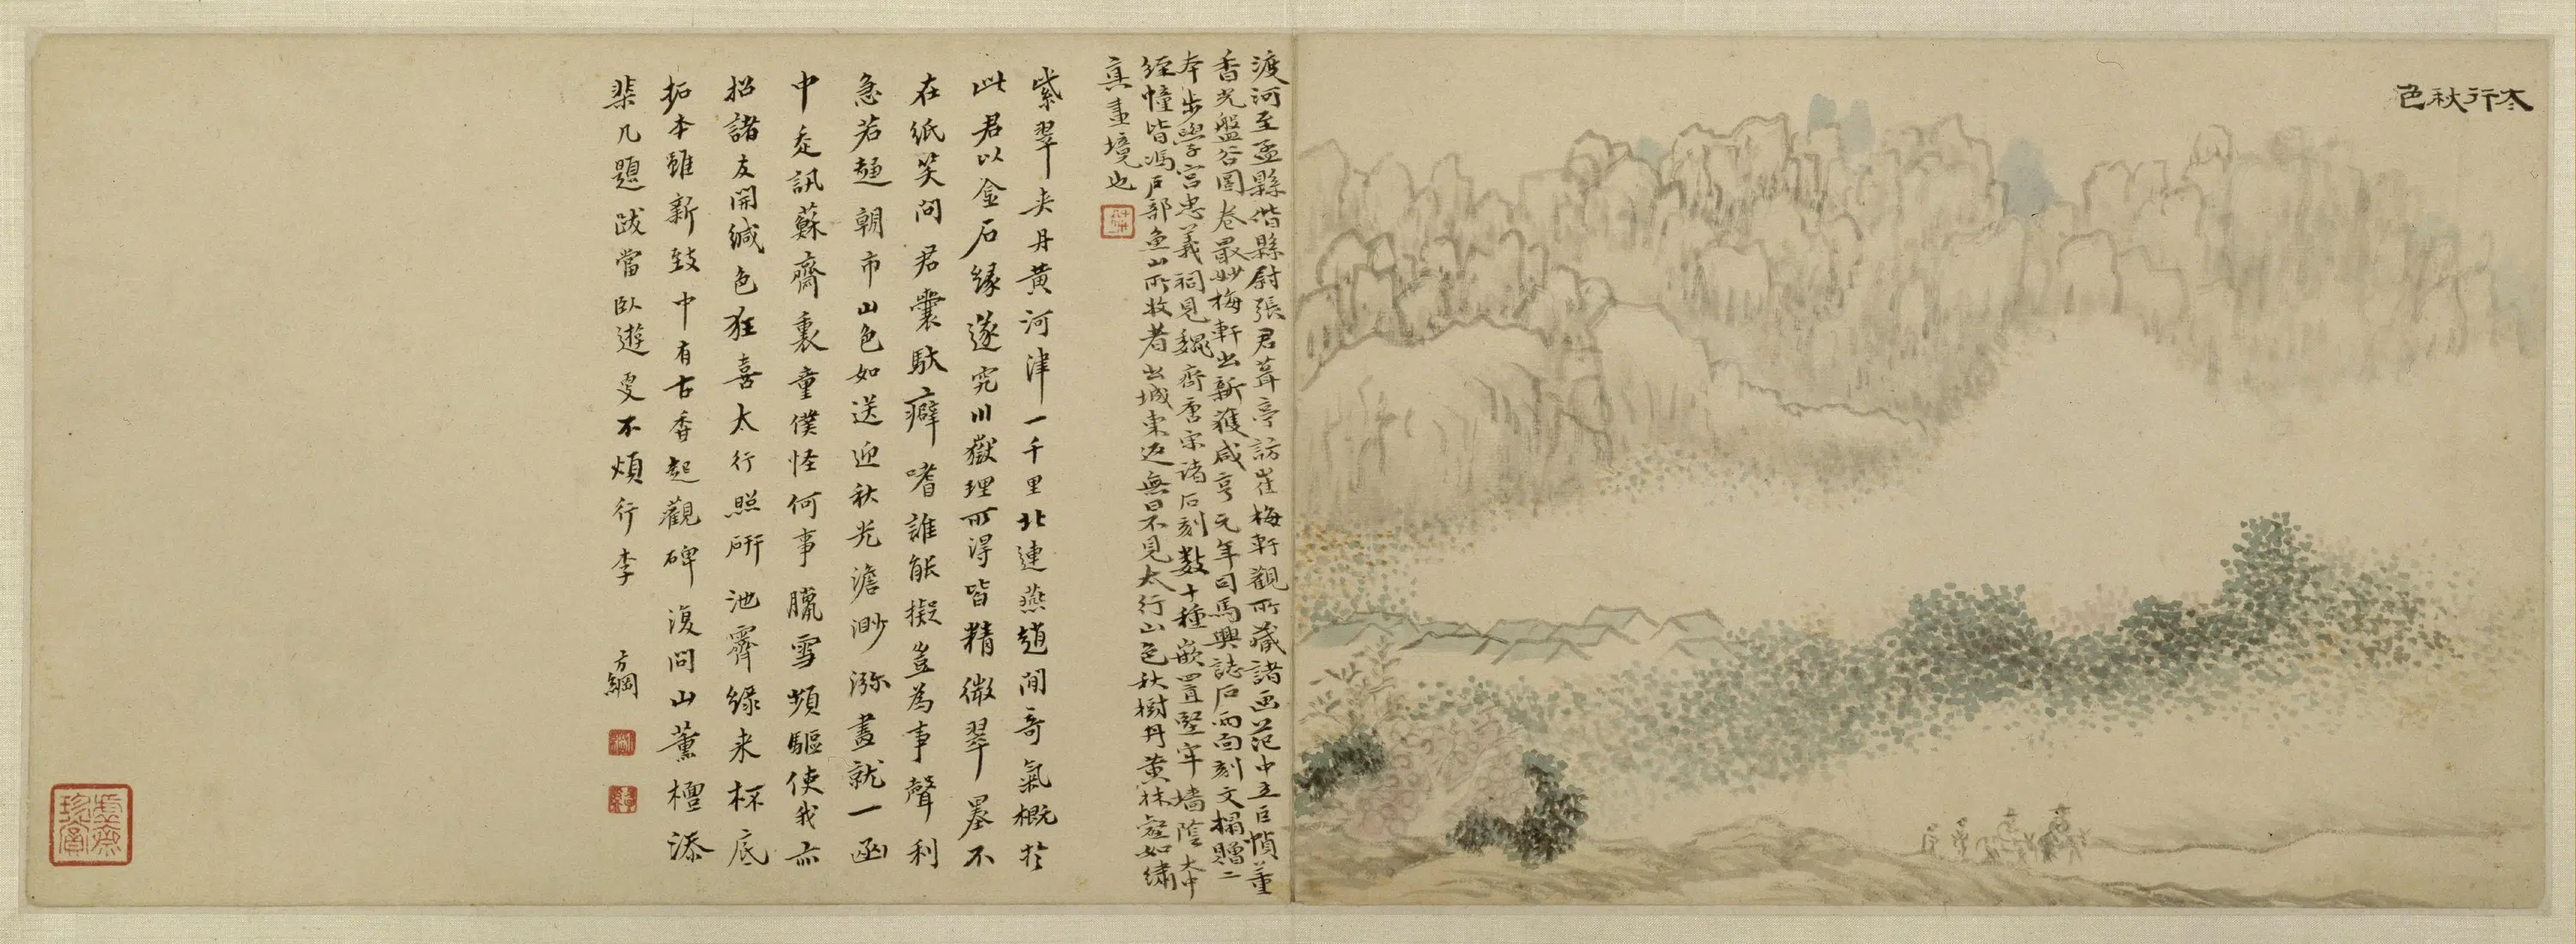 太行秋色
渡河至孟縣偕縣尉張君葺亭訪崔梅軒觀所藏諸画范中立巨幀董
香光盤谷圖卷最妙梅軒出新獲咸亨元年司馬興誌石兩面刻文搨贈二
本步學宮忠義祠見魏齊唐宋諸石刻數十種嵌置堅牢墻蔭大中
經幢皆馮戶部魚山所牧者出城東返無日不見太行山色秋樹丹黄林壑如繡
真畫境也
紫翠夾丹黄河津一千里北連燕趙間奇氣概於
此君以金石緣遂究川嶽理所得皆精微翠墨不
在紙笑問君囊馱癖嗜誰能擬豈為事聲利
急若趨朝市山色如送迎秋光澹渺瀰畫就一函
中走訊蘇齋裏童僕怪何事臘雪頻驅使我亦
招諸友開緘色狂喜太行照研池霽綠来杯底
拓本雖新致中有古香起觀碑復問山薰檀添
棐几題跋當臥遊更不煩行李
方綱